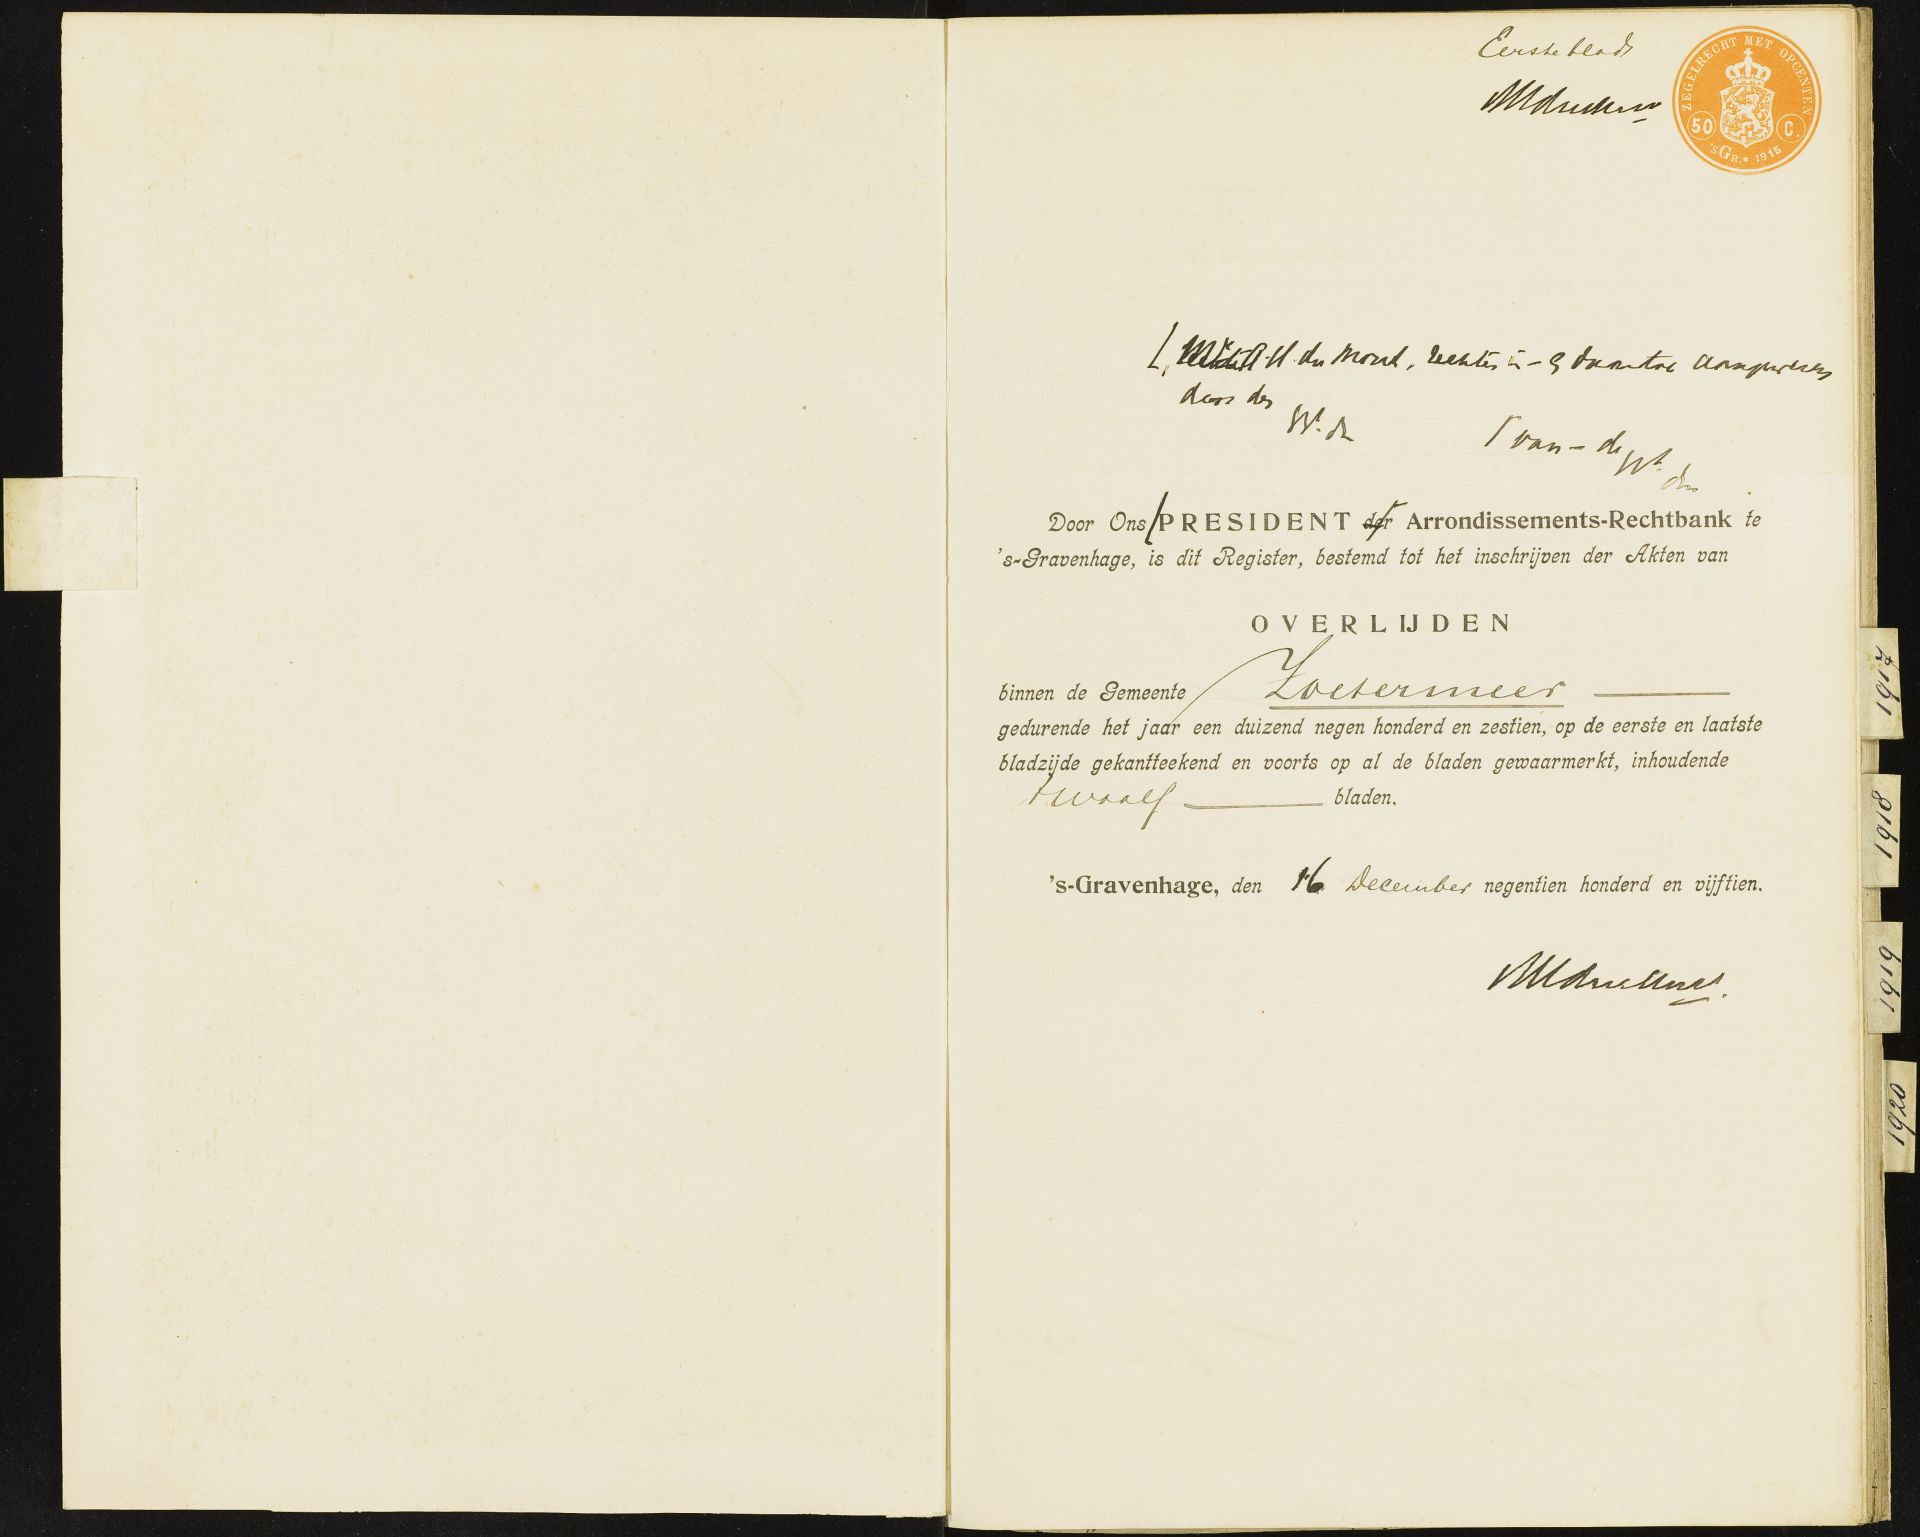 Eerste blad
ZEGELRECHT MET OPCENTEN
50 C.
'sGR.★1915
H. du Mont, rechter in - & daartoe aangewezen
door den
van - de
Door Ons PRESIDENT der Arrondissements-Rechtbank te
's-Gravenhage, is dit Register, bestemd tot het inschrijven der Akten van
OVERLIJDEN
binnen de Gemeente Zoetermeer
gedurende het jaar een duizend negen honderd en zestien, op de eerste en laatste
bladzijde gekantteekend en voorts op al de bladen gewaarmerkt, inhoudende
twaalf bladen.
's-Gravenhage, den 16 December negentien honderd en vijftien.
1917
1918
1919
1920